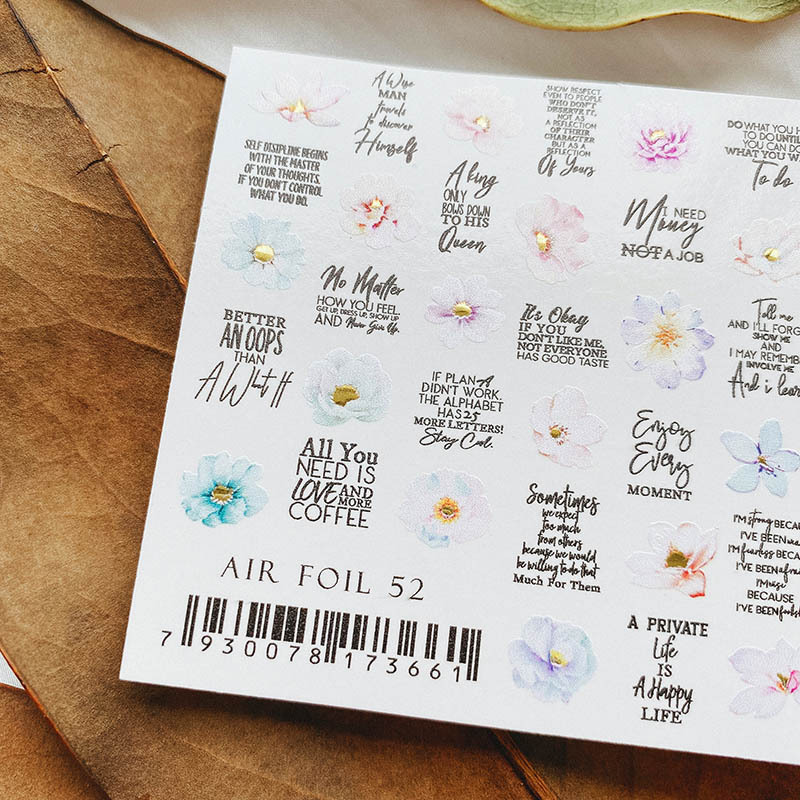 A Wise
MAN
travels
to discover
Himself
SHOW RESPECT
EVEN TO PEOPLE
WHO DON'T
DESERVE IT,
NOT AS
A REFLECTION
OF THEIR
CHARACTER
BUT AS A
REFLECTION
Of Yours
DO WHAT YOU H
TO DO UNTIL
YOU CAN DO
WHAT YOU W
To do
SELF DISCIPLINE BEGINS
WITH THE MASTER
OF YOUR THOUGHTS.
IF YOU DON'T CONTROL
WHAT YOU DO.
A king
ONLY
BOWS DOWN
TO HIS
Queen
I NEED
Money
NOT A JOB
No Matter
HOW YOU FEEL.
GET UP, DRESS UP, SHOW UP
AND Never Give Up.
BETTER
AN OOPS
THAN
A What If
It's Okay
IF YOU
DON'T LIKE ME,
NOT EVERYONE
HAS GOOD TASTE
Tell me
AND I'LL FORG
SHOW ME
AND
I MAY REMEMB
INVOLVE ME
And i lear
IF PLAN A
DIDN'T WORK.
THE ALPHABET
HAS 25
MORE LETTERS!
Stay Cool.
Enjoy
Every
MOMENT
All You
NEED IS
LOVE AND
MORE
COFFEE
Sometimes
we expect
too much
from others
because we would
be willing to do that
Much For Them
I'm strong BECAU
I'VE BEEN wea
I'm fearless BECAU
I'VE BEEN afra
I'm wise
BECAUSE
I'VE BEEN foolis
A PRIVATE
Life
IS
A Happy
LIFE
AIR FOIL 52
7 930078 173661